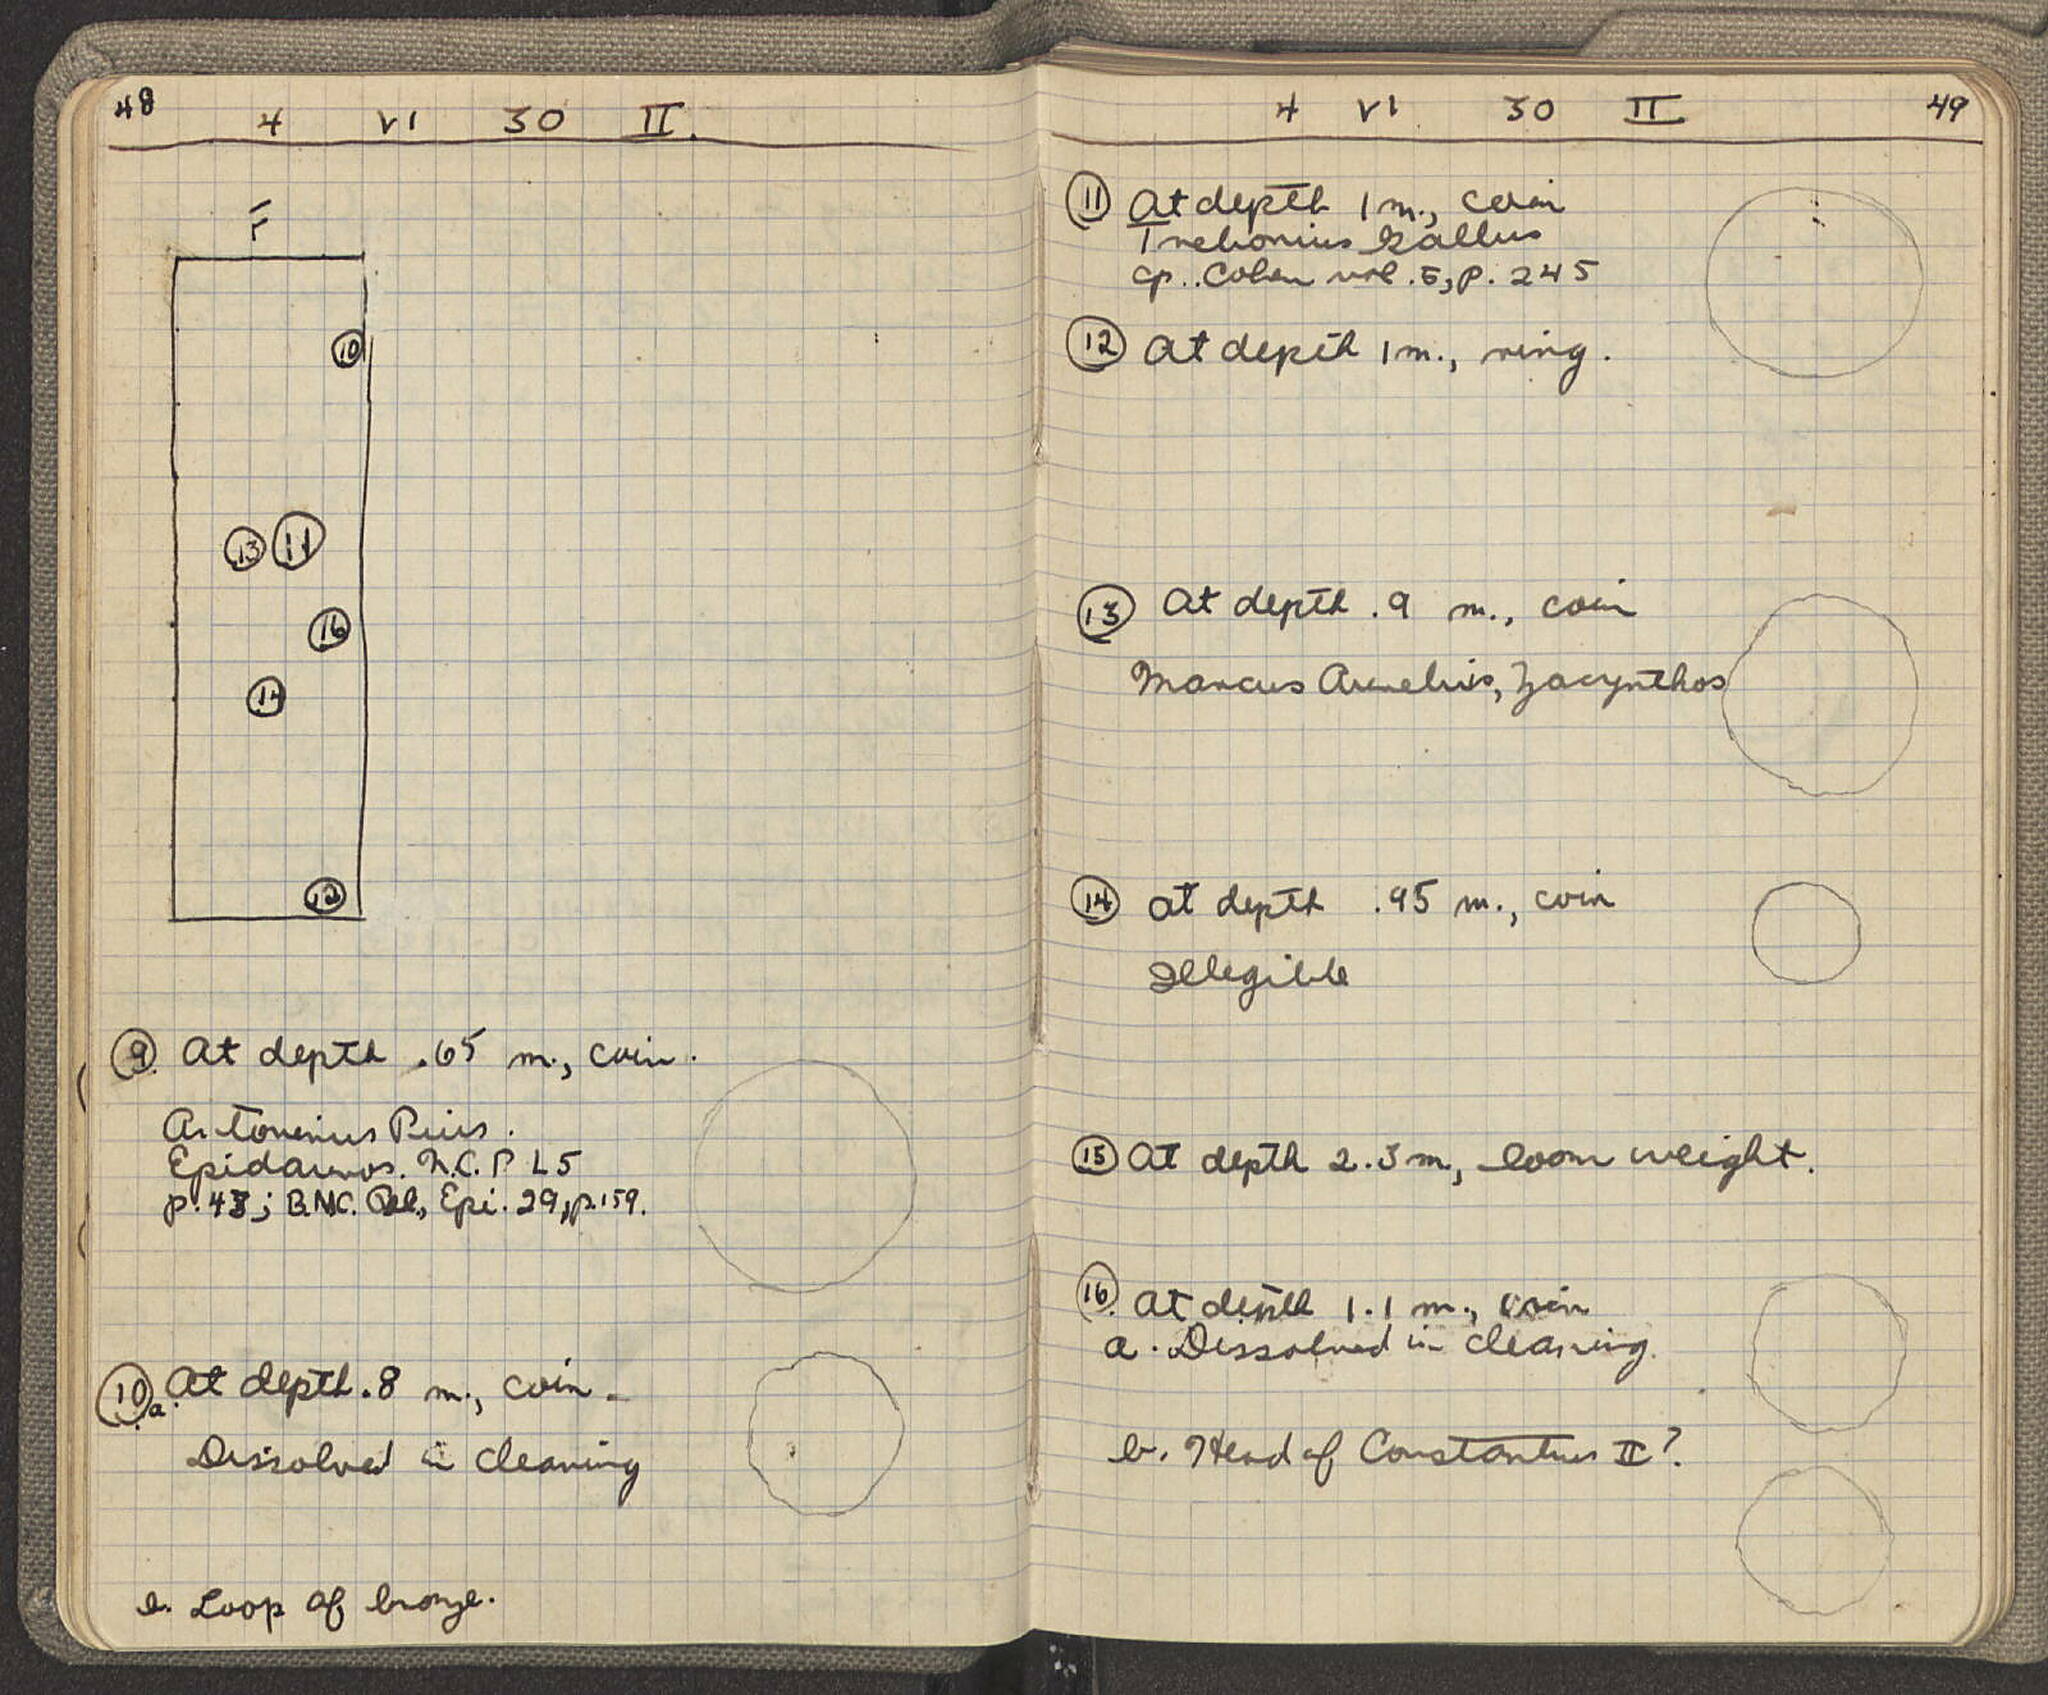 48
4 VI 30 II.
F
10
13 11
16
14
12
9. At depth .65 m., coin.
Antoninus Pius.
Epidaurus. N.C.P L5
p. 43; B.M.C. Pel., Epi. 29, p.159.
10 a. At depth .8 m., coin.
Dissolved in cleaning
b. Loop of bronze.
4 VI 30 II
49
11 At depth 1 m., coin
Trebonius Gallus
cp. Cohen vol. 5, p. 245
12 At depth 1 m., ring.
13 At depth .9 m., coin
Marcus Aurelius, Zacynthos
14 At depth .95 m., coin
Illegible
15 At depth 2.3 m, loom weight.
16. At depth 1.1 m., coin
a. Dissolved in cleaning.
b. Head of Constantius II?